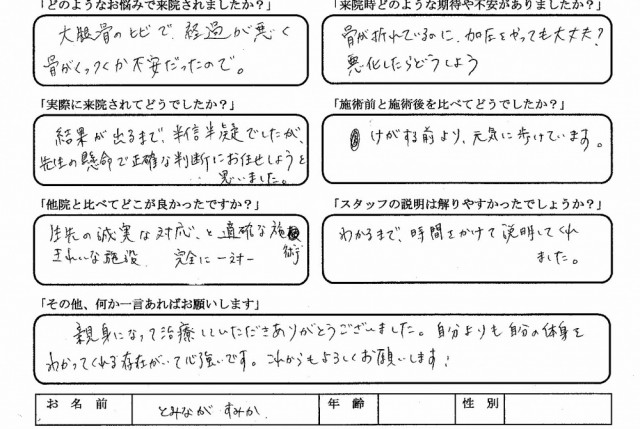 「どのようなお悩みで来院されましたか？」
大腿骨のヒビで、経過が悪く
骨がくっつくか不安だったので。
「来院時どのような期待や不安がありましたか？」
骨が折れているのに、加圧をやっても大丈夫？
悪化したらどうしよう
「実際に来院されてどうでしたか？」
結果が出るまで、半信半疑でしたが、
先生の懸命で正確な判断にお任せしようと
思いました。
「施術前と施術後を比べてどうでしたか？」
けがする前より、元気に歩けています。
「他院と比べてどこが良かったですか？」
先生の誠実な対応、と適確な施術
きれいな施設 完全に一対一
「スタッフの説明は解りやすかったでしょうか？」
わかるまで、時間をかけて説明してくれ
ました。
「その他、何か一言あればお願いします」
親身になって治療していただきありがとうございました。自分よりも自分の体身を
わかってくれる存在がいて心強いです。これからもよろしくお願いします！
お名前 とみなが すみか 年齢 性別